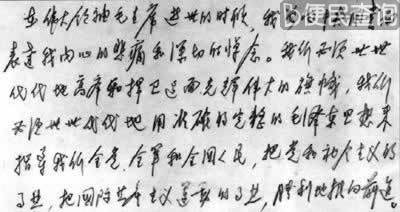 便民查询
在伟大领袖毛主席逝世的时候，我
表达我内心的悲痛和深切的悼念。我们必须世世
代代地高举和捍卫这面光辉伟大的旗帜，我们
必须世世代代地用准确的完整的毛泽东思想来
指导我们全党、全军和全国人民，把党和社会主义的
事业，把国际共产主义运动的事业，胜利地推向前进。